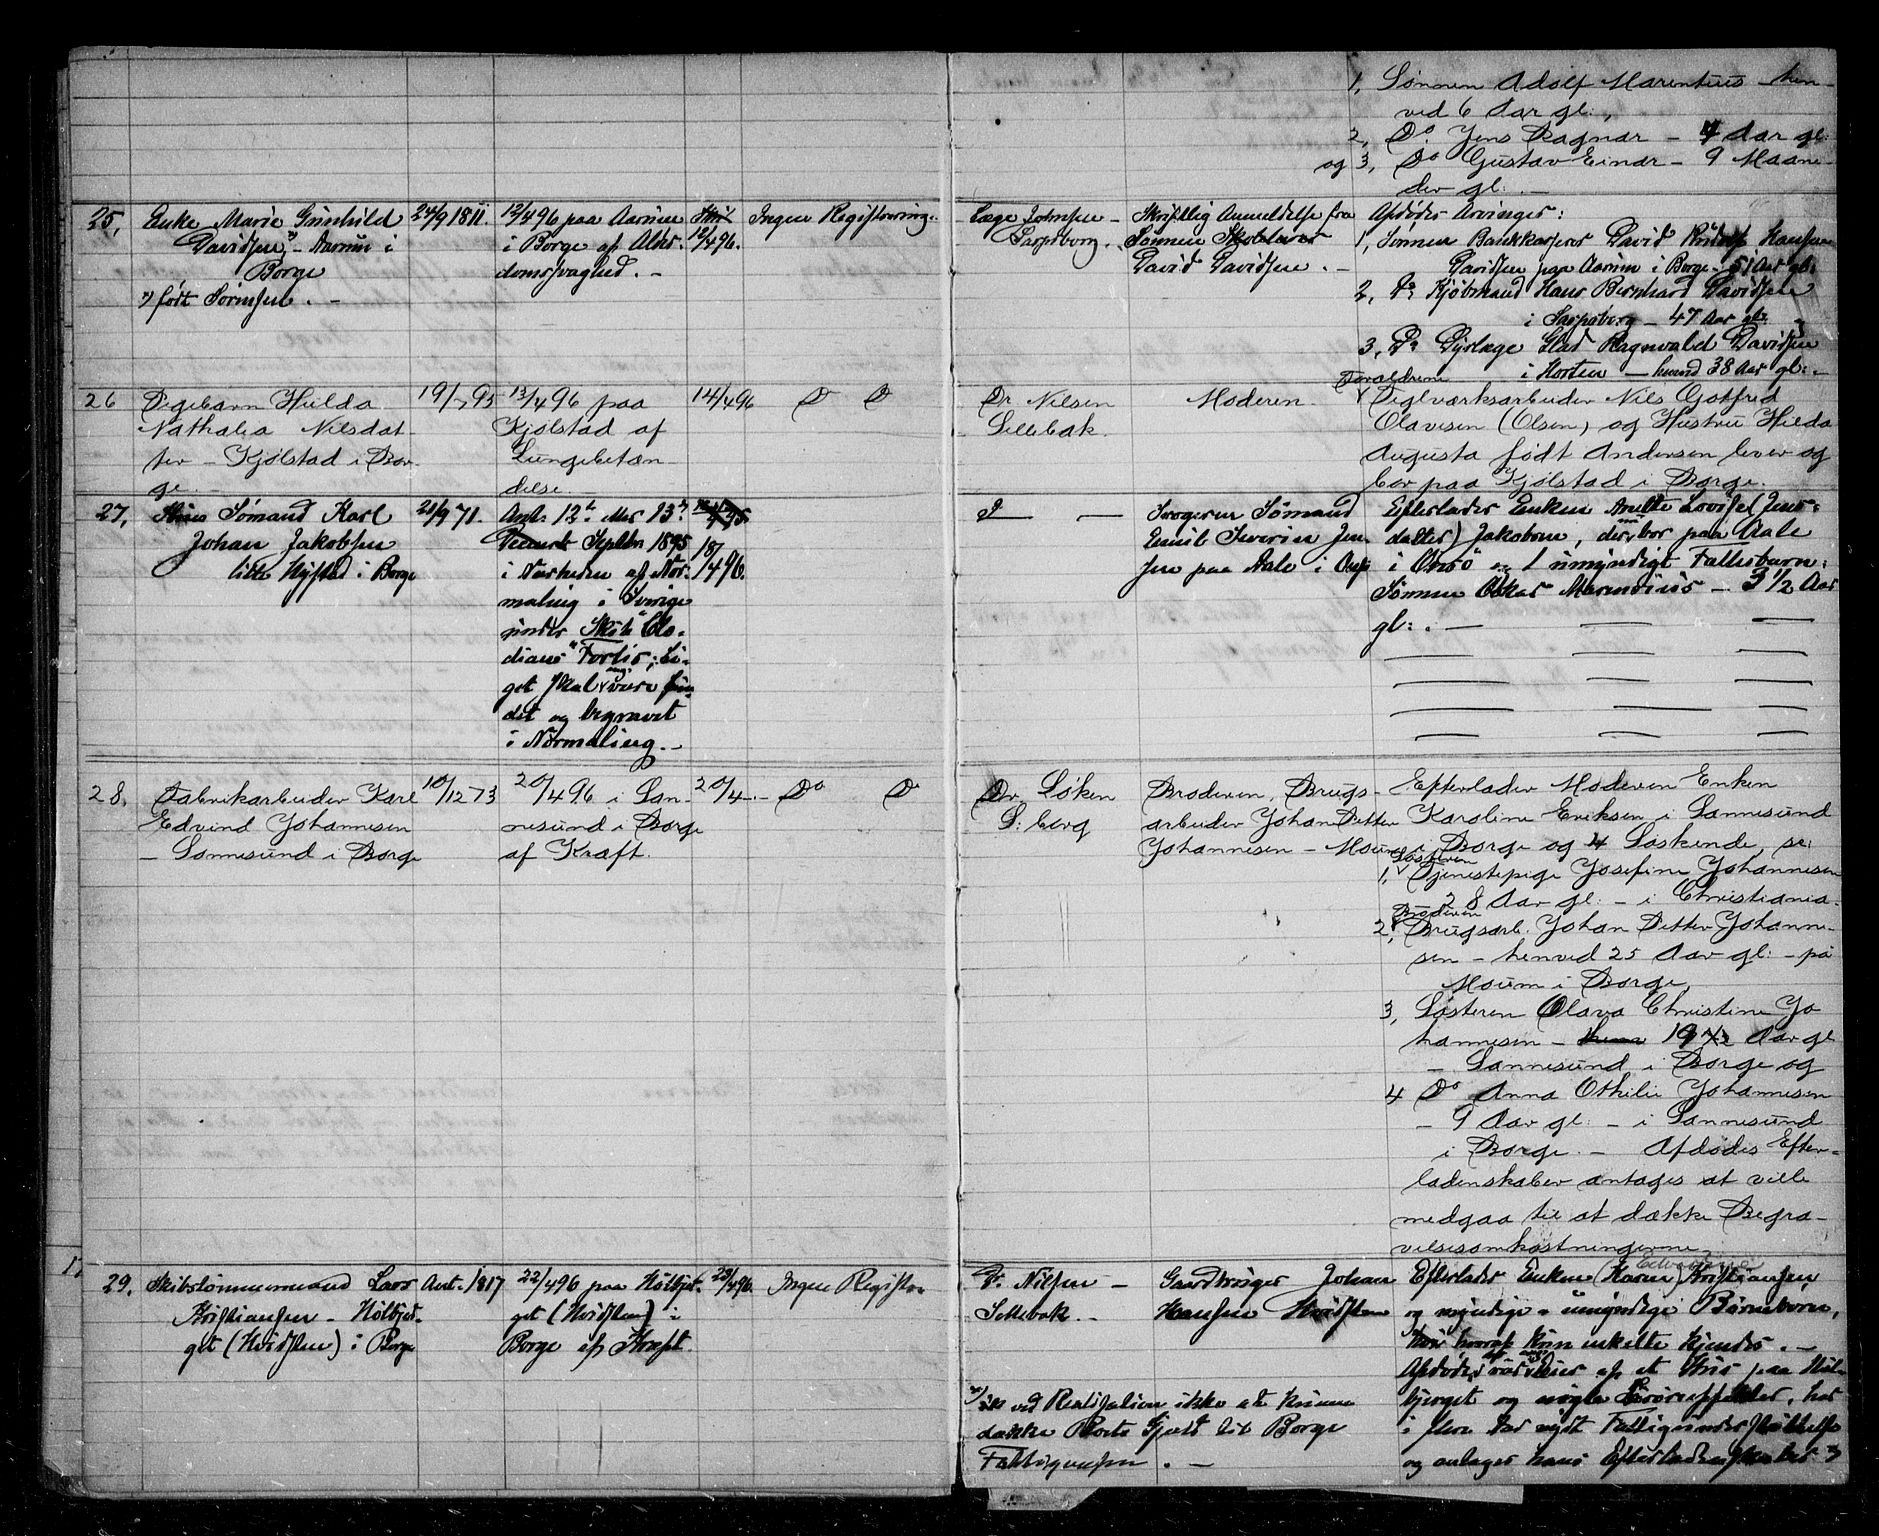 1, Sønnen Adolf Marentius hen-
ved 6 Aar gl:,
2, Do Jens Ragnar – 4 Aar gl:
og 3, Do Gustav Einar – 9 Maane-
der gl: . –
25, Enke Marie Gunhild
Davidsen, – Aarum i
Borge
født Sørensen . –
24/9 1811.
12/4 96 paa Aarum
i Borge af Alder-
domssvaghed . –
12/4 96.
Ingen Registrering.
Læge Johnsen –
Sarpsborg .
Skriftlig Anmeldelse fra
Sønnen
David Davidsen . –
Afdødes Arvinger:
1, Sønnen Bankkasserer David Rudolf Hansen
Davidsen paa Aarum i Borge – 51 Aar gl:
2, Do Kjøbmand Hans Bernhard Davidsen
i Sarpsborg – 47 Aar gl:
3, Do Dyrlæge Elad Ragnvald Davidsen
i Horten – henved 38 Aar gl: . –
26 Pigebarn Hilda
Nathalia Nilsdat-
ter – Kjølstad i Bor-
ge. –
19/7 95
13/4 96 paa
Kjølstad af
Lungebetæn-
delse.
14/4 96
Do Do
Dr Nilsen
Sellebak.
Moderen
Forældrene
Teglværksarbeider Nils Gotfred
Olavesen (Olsen) og Hustru Hilda
Augusta født Andersen lever og
bor paa Kjølstad i Borge.
27, Sømand Karl
Johan Jakobsen
lille Hystad i Borge
21/9 71.
Ant. 12te eller 13de
Septbr 1895
i Nærheden af Nor-
maling i Sverige
under Skib Clo-
dians "Fortis"; Li-
get skal være fun-
det og begravet
i Normaling. –
18/4 96.
Do –
Svogeren Sømand
Emil Severin Jen-
sen paa Aale i Onsø
Efterlader Enken Anette Lovise (Jens-
datter) Jakobsen, der bor paa Aale
i Onsø og 1 umyndigt Fællesbarn:
Sønnen Oskar Marendius – 3 1/2 Aar
gl: . –
28, Fabrikarbeider Karl
Edvind Johannesen
– Sannesund i Borge
10/12 73
20/4 96 i San-
nesund i Borge
af Kræft.
20/4 –
Do Do
Dr Løken
S: borg
Broderen, Brugs-
arbeider Johan Petter
Johannesen – Moum
Efterlader Moderen Enken
Karoline Eriksen i Sannesund
i Borge og 4 Søskende, se:
Søsteren
1, Tjenestepige Josefine Johannesen
28 Aar gl: – i Christiania.
Broderen
2, Brugsarb. Johan Petter Johanne-
sen – henved 25 Aar gl: – på
Moum i Borge,
3, Søsteren Olava Christine Jo
hannesen – 19 1/2 Aar gl
– Sannesund i Borge og
4 Do Anna Othilie Johannesen
– 9 Aar gl: – i Sannesund
i Borge. – Afdødes Efter-
ladenskaber antages at ville
medgaa til at dække Begra-
velsesomkostningerne.
29. Skibstømmermand Lars
Kristiansen – Hølbjer-
get (Hvidsten) i Borge
Ant. 1817
22/4 96 paa Hølbjer-
get (Hvidsten) i
Borge af Kræft.
23/4 96.
Ingen Registr.
Dr. Nilsen –
Sellebak. –
Gaardbruger Johan
Hansen Hvidsten
Efterlader Enken (Karen) Kristiansen
og myndige & umyndige Børnebørn,
hvoraf kun enkelte kjendes . –
Afdøde var Eier af et Hus paa Høl-
bjerget og nogle Løsøreffekter, har
i flere Aar nydt Fattigunderstøttelse
og antages hans Efterladenskaber
ved Realisation ikke at kunne
dække Borts Gjæld til Borge
Fattigvæsen . –